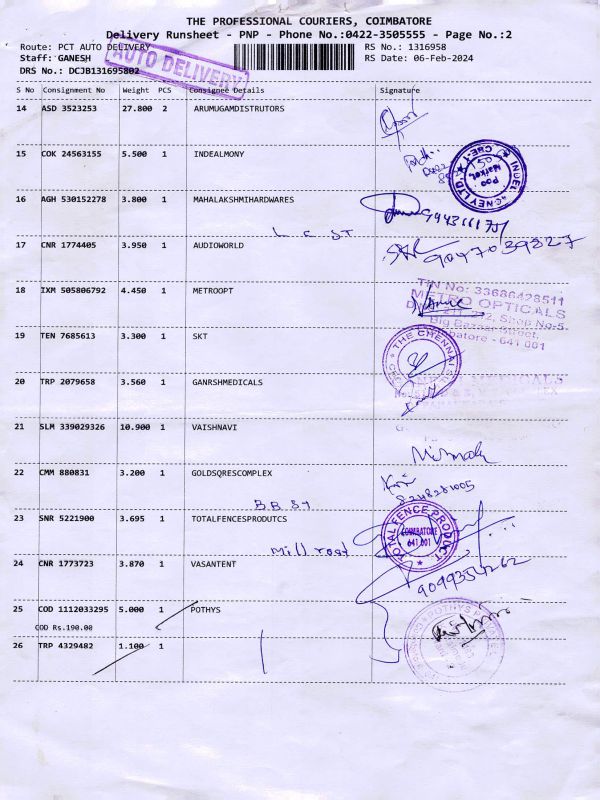 THE PROFESSIONAL COURIERS, COIMBATORE
Delivery Runsheet - PNP - Phone No.:0422-3505555 - Page No.:2
Route: PCT AUTO DELIVERY RS No.: 1316958
Staff: GANESH RS Date: 06-Feb-2024
AUTO DELIVERY
DRS No.: DCJB131695802
S No Consignment No Weight PCS Consignee Details Signature
14 ASD 3523253 27.800 2 ARUMUGAMDISTRUTORS
15 COK 24563155 5.500 1 INDEALMONY
16 AGH 530152278 3.800 1 MAHALAKSHMIHARDWARES
17 CNR 1774405 3.950 1 AUDIOWORLD
18 IXM 505806792 4.450 1 METROOPT
TIN No: 33686428511
METRO OPTICALS
Shop No-5
Big Bazaar Street,
Coimbatore - 641 001
19 TEN 7685613 3.300 1 SKT
THE CHENNAI
20 TRP 2079658 3.560 1 GANRSHMEDICALS
21 SLM 339029326 10.900 1 VAISHNAVI
Nirmala
22 CMM 880831 3.200 1 GOLDSQRESCOMPLEX
8248281005
BB St
23 SNR 5221900 3.695 1 TOTALFENCESPRODUTCS
TOTAL FENCE PRODUCT
COIMBATORE
641 001
Mill road
24 CNR 1773723 3.870 1 VASANTENT
25 COD 1112033295 5.000 1 POTHYS
COD Rs.190.00
26 TRP 4329482 1.100 1